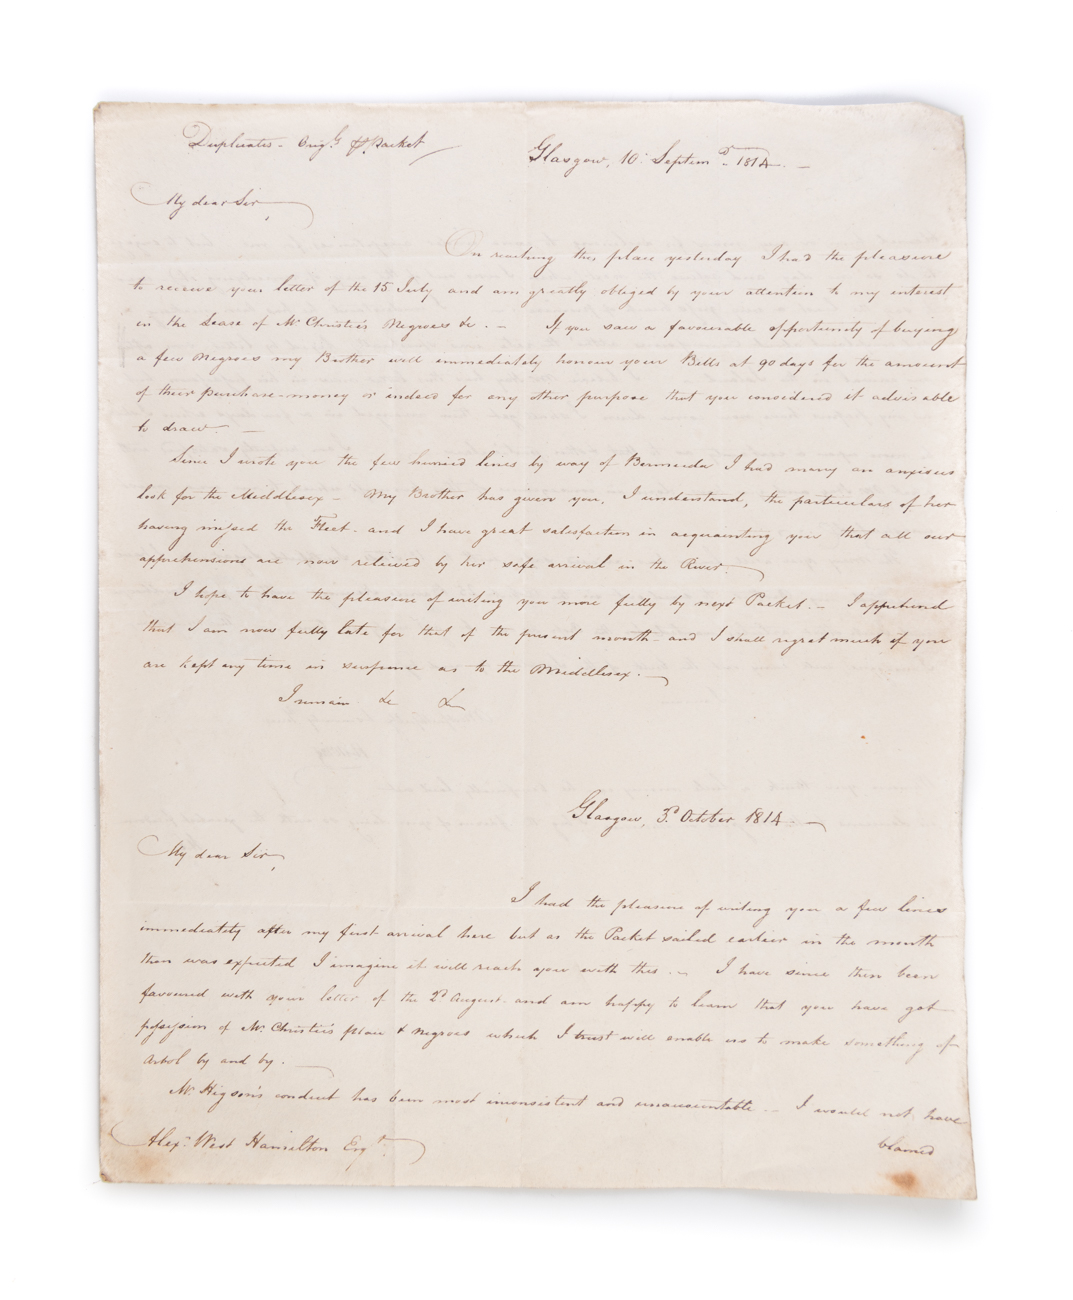 Duplicate - Orig.l P. Packet
Glasgow, 10 Septem.r 1814. -
My dear Sir,
On reaching this place yesterday I had the pleasure
to receive your letter of the 15 July and am greatly obliged by your attention to my interest
in the Lease of Mr Christie's Negroes &c. - If you saw a favourable opportunity of buying
a few Negroes my Brother will immediately honour your Bills at 90 days for the amount
of their Purchase-money or indeed for any other purpose that you considered it advisable
to draw. -
Since I wrote you the few hurried lines by way of Bermuda I had many an anxious
look for the Middlesex - My Brother has given you, I understand, the particulars of her
having missed the Fleet - and I have great satisfaction in acquainting you that all our
apprehensions are now relieved by her safe arrival in the River.
I hope to have the pleasure of writing you more fully by next Packet. - I apprehend
that I am now fully late for that of the present month and I shall regret much if you
are kept any time in suspense as to the Middlesex. -
I remain &c &c
Glasgow, 3d October 1814 -
My dear Sir,
I had the pleasure of writing you a few lines
immediately after my first arrival here but as the Packet sailed earlier in the month
than was expected I imagine it will reach you with this. - I have since then been
favoured with your letter of the 2d August and am happy to learn that you have got
possession of Mr Christie's place & Negroes which I trust will enable us to make something of
Arbol by and by.
Mr Higson's conduct has been most inconsistent and unaccountable - I would not have
blamed
Alexr West Hamilton Esqr